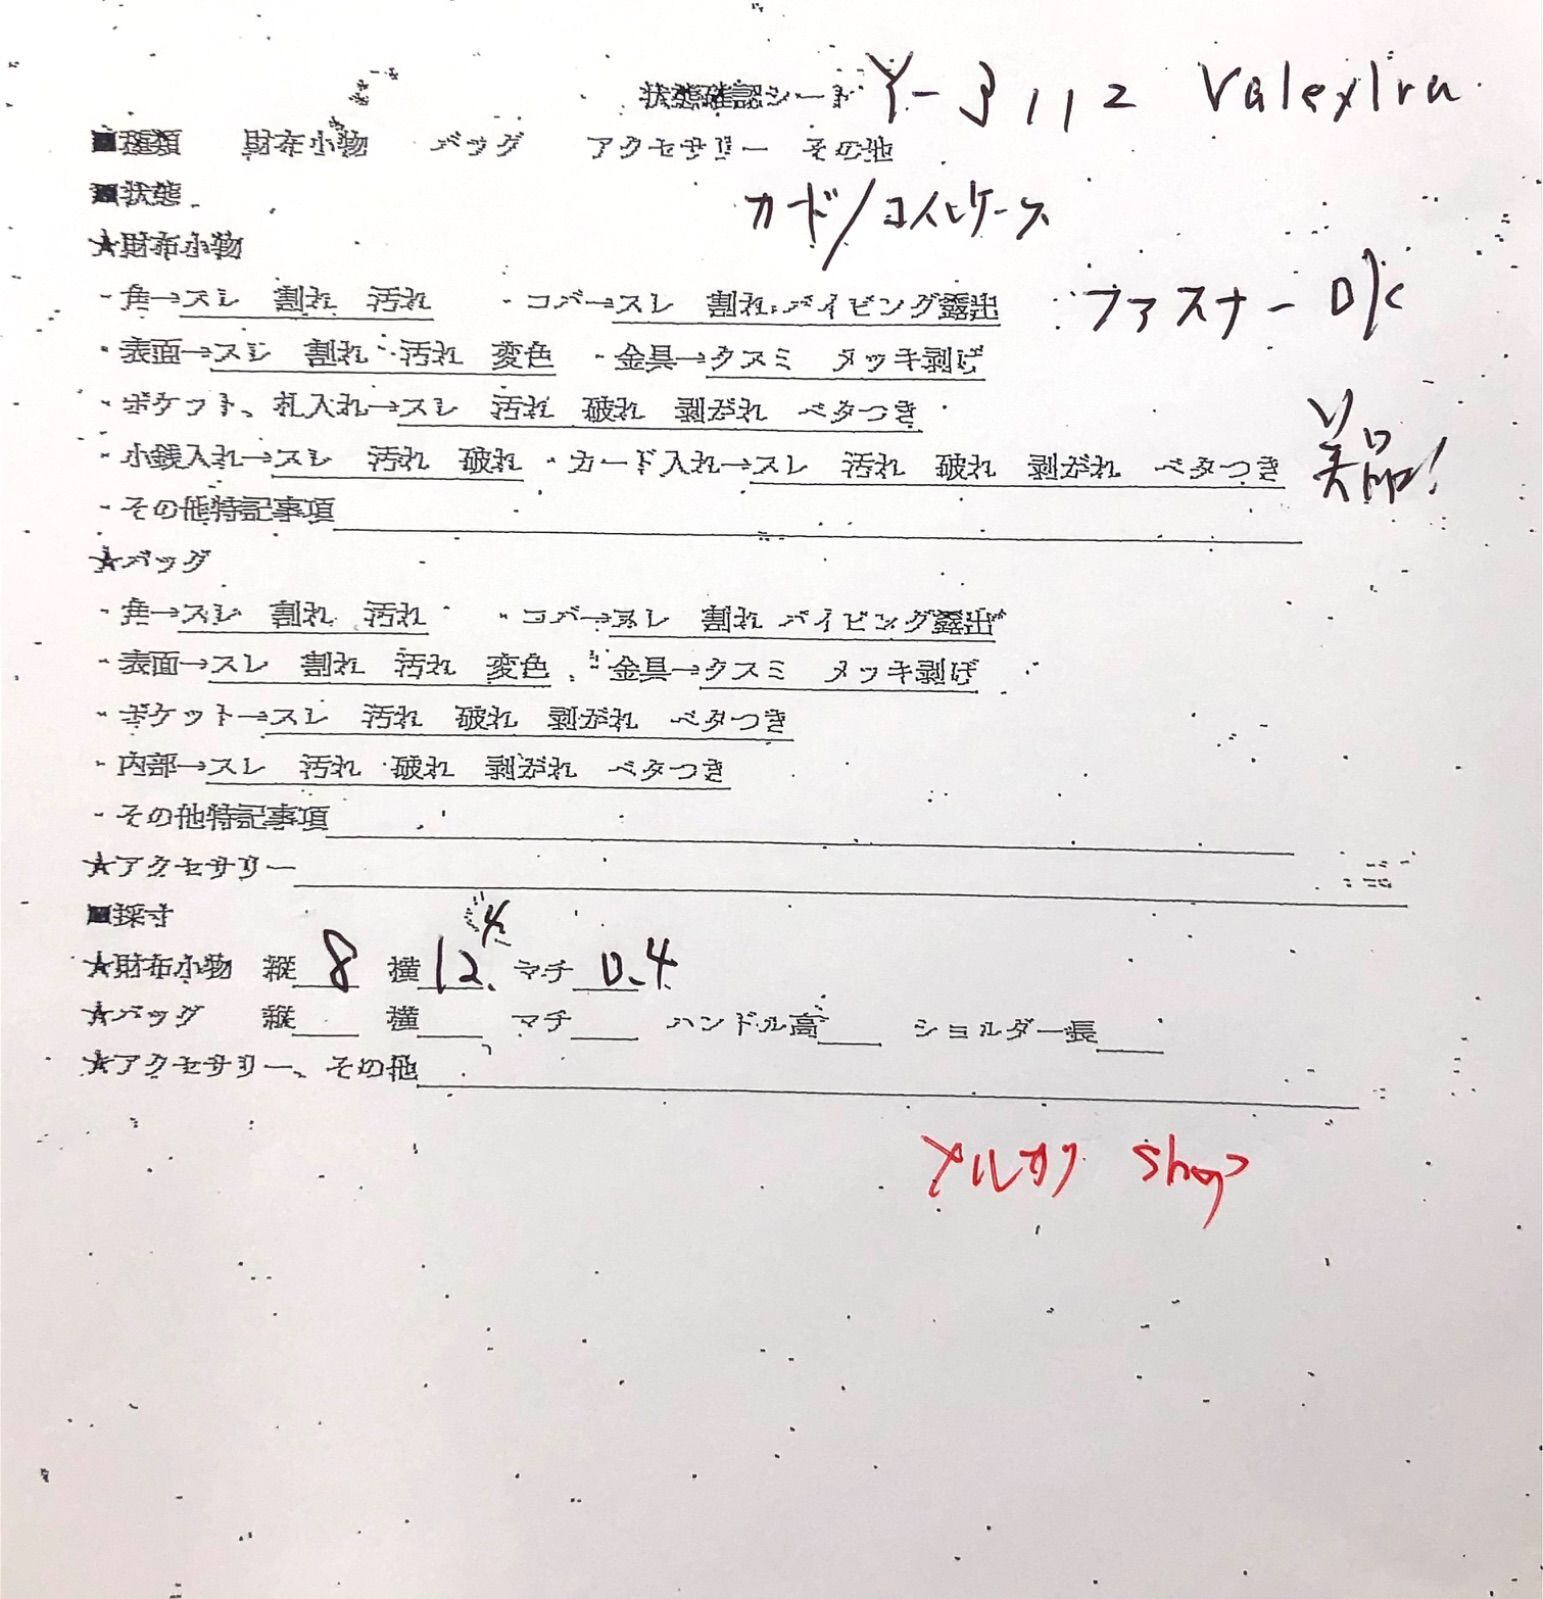 状態確認シート Y-3112 Valextra
■種類 財布小物 バッグ アクセサリー その他
■状態 カード/コインケース
★財布小物
・角→スレ 割れ 汚れ ・コバ→スレ 割れ パイピング露出 ファスナーOK
・表面→スレ 割れ 汚れ 変色 ・金具→クスミ メッキ剥げ
・ポケット、札入れ→スレ 汚れ 破れ 剥がれ ベタつき
・小銭入れ→スレ 汚れ 破れ ・カード入れ→スレ 汚れ 破れ 剥がれ ベタつき 美品!
・その他特記事項
★バッグ
・角→スレ 割れ 汚れ ・コバ→スレ 割れ パイピング露出
・表面→スレ 割れ 汚れ 変色 ・金具→クスミ メッキ剥げ
・ポケット→スレ 汚れ 破れ 剥がれ ベタつき
・内部→スレ 汚れ 破れ 剥がれ ベタつき
・その他特記事項
★アクセサリー
■採寸
★財布小物 縦 8 横 12.4 マチ 0.4
★バッグ 縦 横 マチ ハンドル高 ショルダー長
★アクセサリー、その他
メルカリ shop